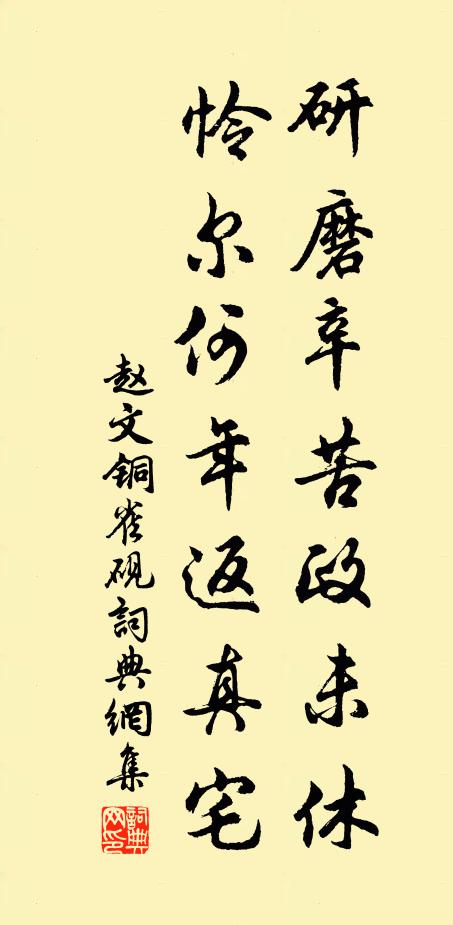 研磨辛苦政未休
怜尔何年返真宅
赵文铜雀砚詞典網集
詞典网印